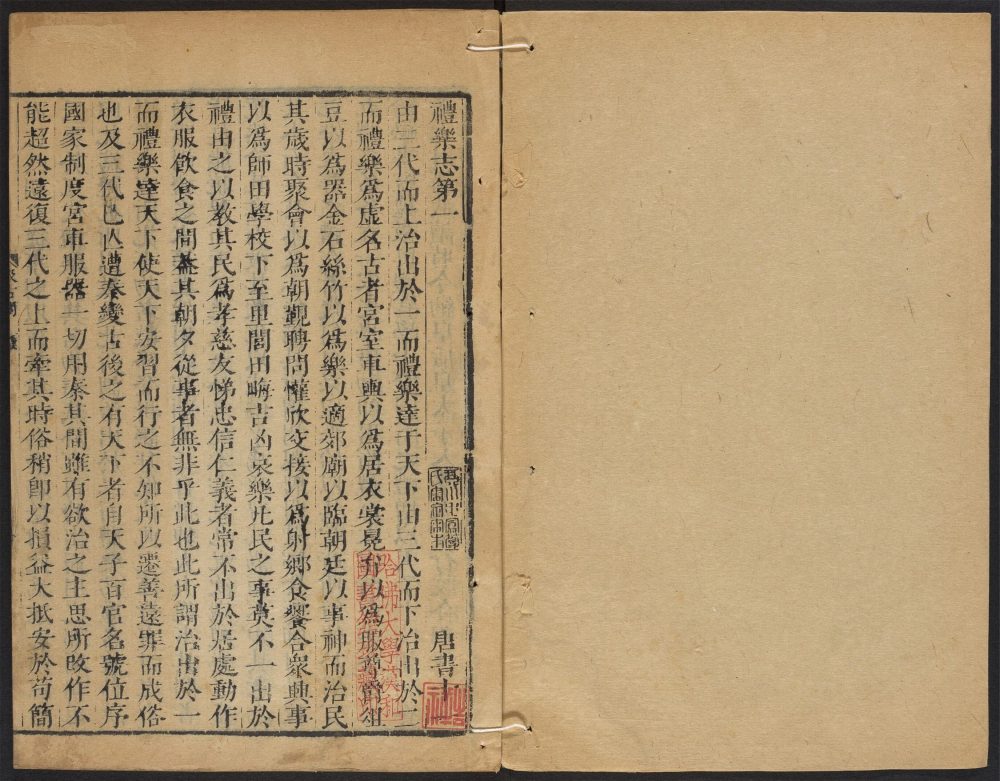 禮樂志第一　唐書十一
由三代而上治出於一而禮樂達于天下由三代而下治出於二
而禮樂爲虚名古者宮室車輿以爲居衣裳冕弁以爲服尊爵俎
豆以爲器金石絲竹以爲樂以適郊廟以臨朝廷以事神而治民
其歲時聚會以爲朝覲聘問懽欣交接以爲射鄉食饗合衆興事
以爲師田學校下至里閭田畮吉凶哀樂凡民之事莫不一出於
禮由之以教其民爲孝慈友悌忠信仁義者常不出於居處動作
衣服飲食之間葢其朝夕從事者無非乎此也此所謂治出於一
而禮樂達天下使天下安習而行之不知所以遷善遠罪而成俗
也及三代已亾遭秦變古後之有天下者自天子百官名號位序
國家制度宮車服器一切用秦其間雖有欲治之主思所攺作不
能超然遠復三代之上而牽其時俗稍卽以損益大抵安於苟簡
哈佛大學漢和